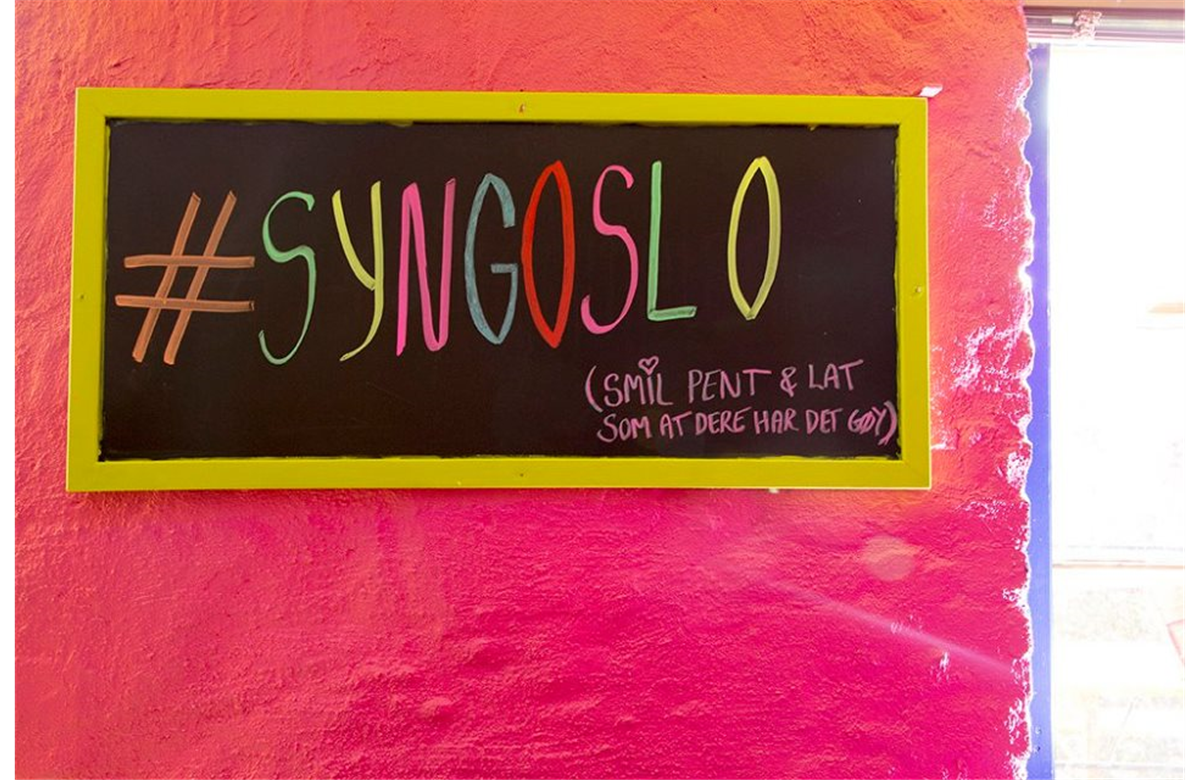 #SYNGOSLO
(SMIL PENT & LAT
SOM AT DERE HAR DET GØY)